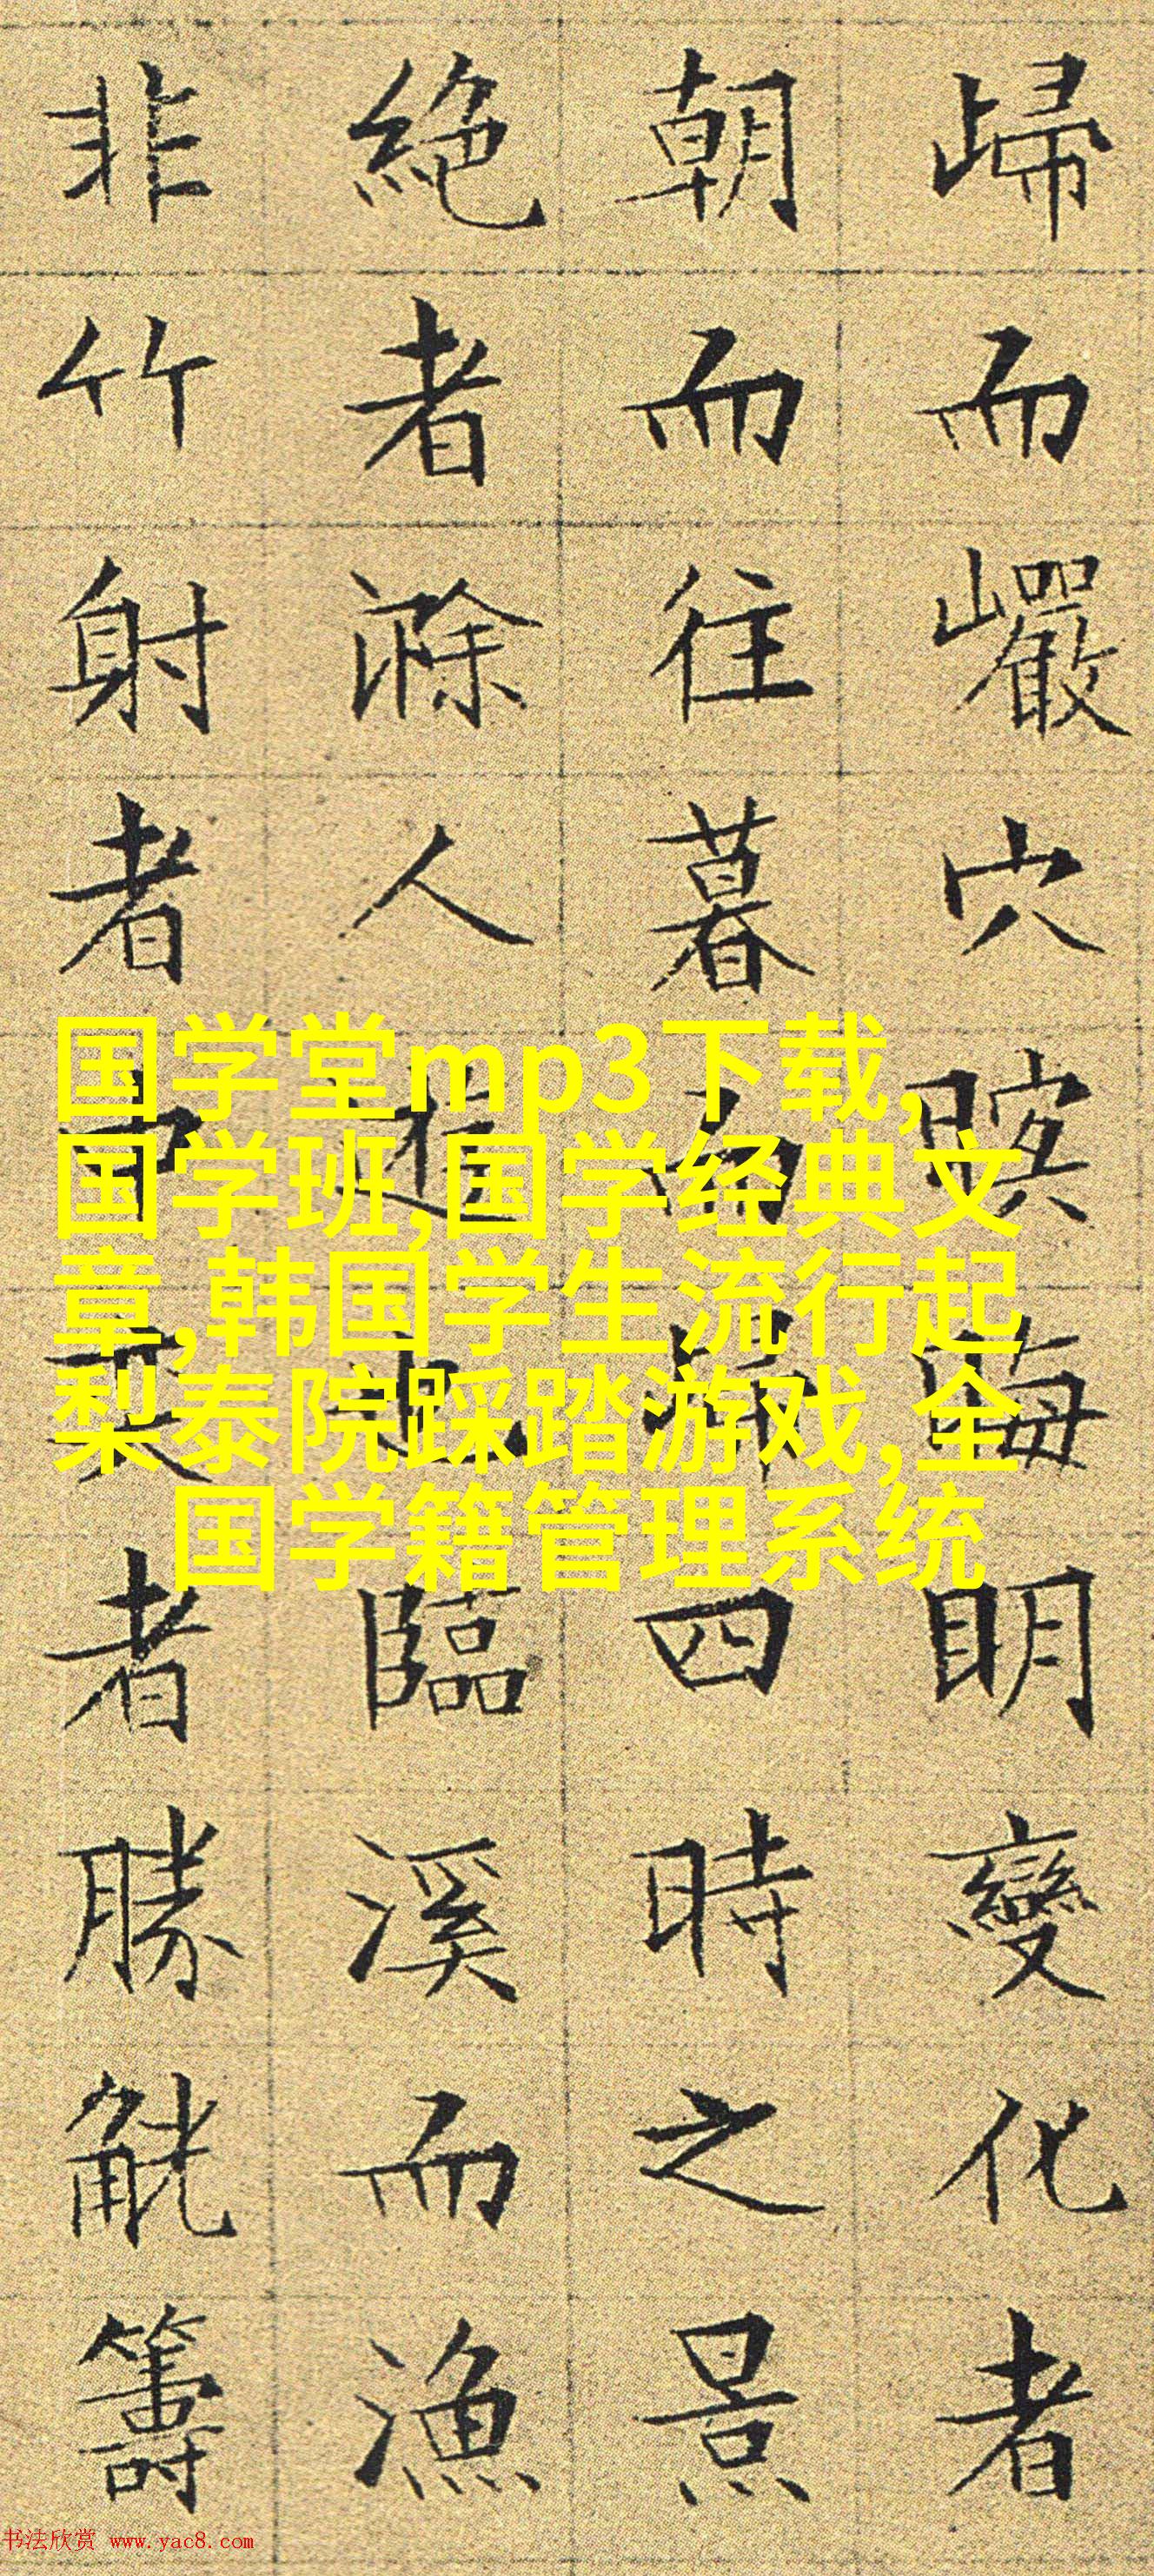 歸而巖穴暝晦明變化者
朝而往暮而四時之景
絶者滁人臨溪而漁
非竹射者中者勝觥籌
国学堂mp3下载,
国学班,国学经典文
章,韩国学生流行起
梨泰院踩踏游戏,全
国学籍管理系统
书法欣赏 www.yac8.com